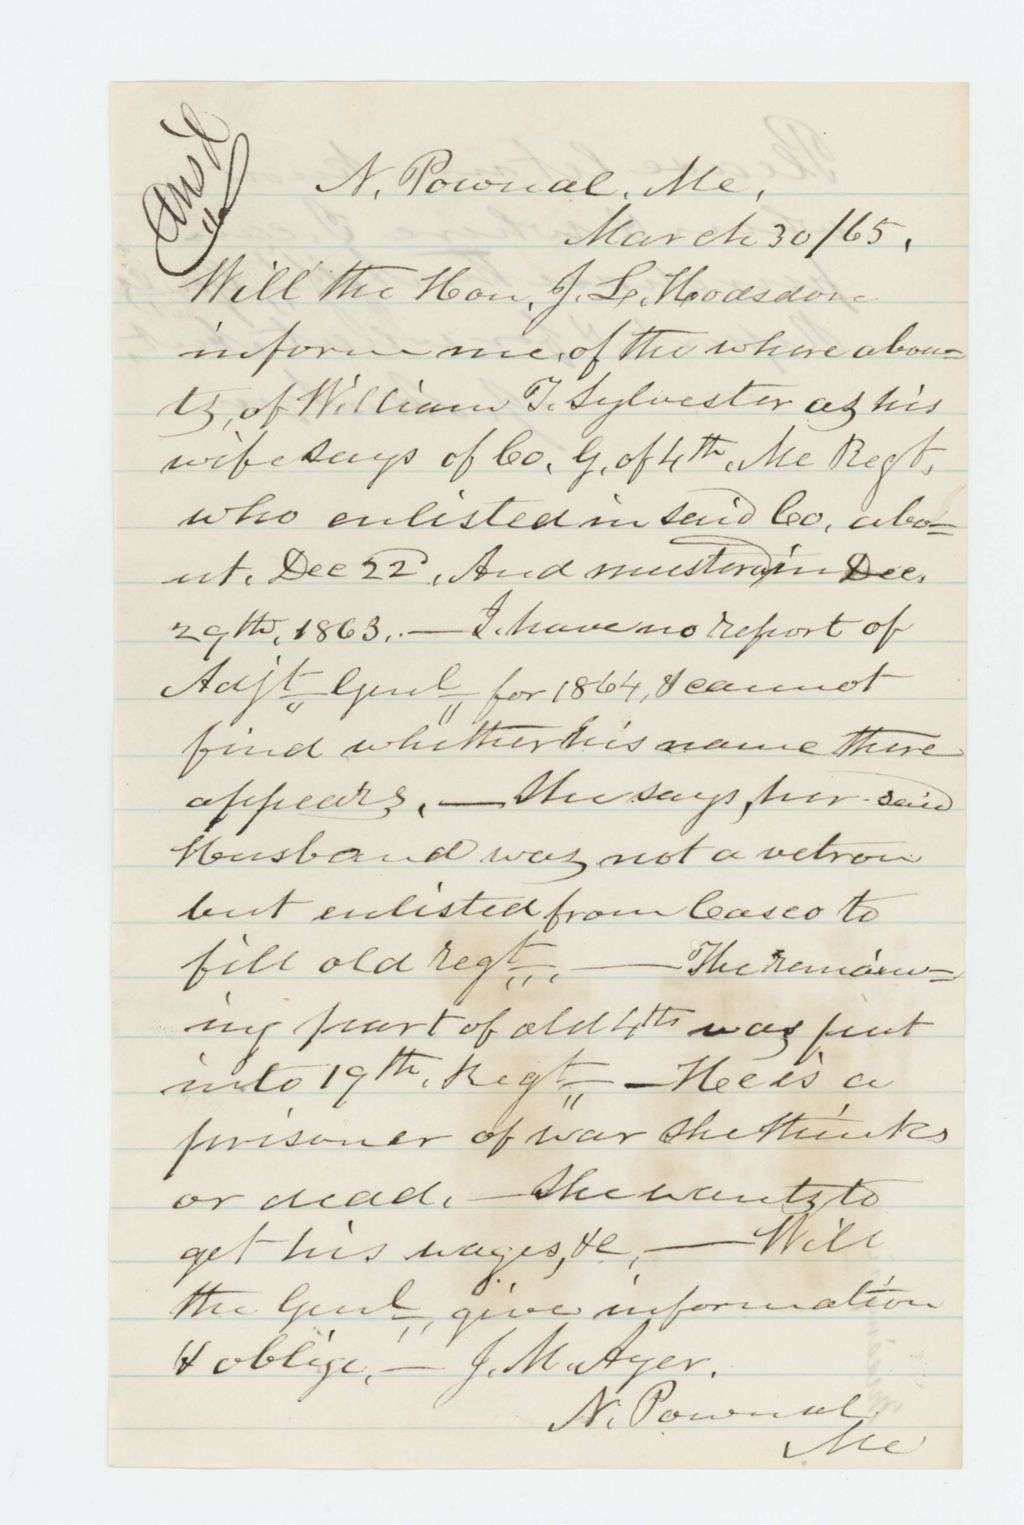 Ans'd
N. Pownal, Me,
March 30/65,
Will the Hon. J. L. Hodsdon
inform me, of the where abou=
ts, of William T. Sylvester as his
wife says of Co. G. of 4th. Me Regt.
who enlisted in said Co. abo=
ut. Dec 22, And mustered in Dec.
29th, 1863. — I have no report of
Adjt Genl for 1864, & cannot
find whether his name there
appears. — She says, her said
Husband was not a vetron
but enlisted from Casco to
fill old regt. — The remain=
ing part of old 4th was put
into 19th. Regt — He is a
prisoner of war she thinks
or dead. — She wants to
get his wages, &c, — Will
the Genl give information
& oblige, — J. M. Ayer.
N. Pownal
Me